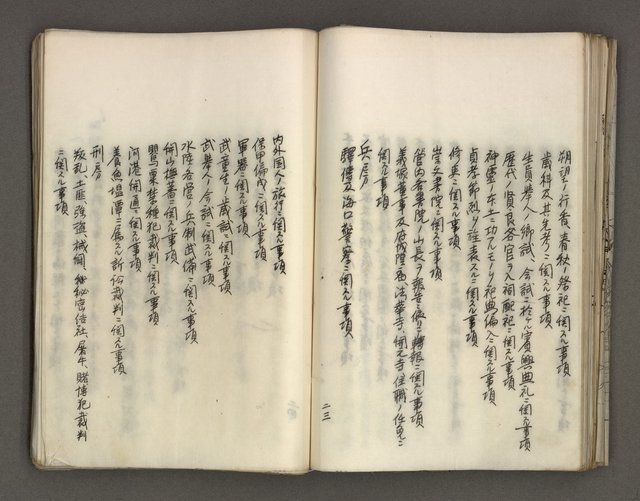 朔望ノ行香、春秋ノ祭祀ニ関スル事項
歳科及其先考ニ関スル事項
生員挙人ノ郷試、会試ニ於ケル賓興典礼ニ関スル事項
歴代ノ賢良各官ヲ入祠配祀ニ関スル事項
神霊ノ本土ニ功アルモノ祀典編入ニ関スル事項
貞孝節烈ノ旌表スルニ関スル事項
修史ニ関スル事項
崇文書院ニ関スル事項
管内各書院ノ山長ヲ報告ニ依リ轉報ニ関スル事項
義塚董事及府城隍廟、法華寺、開元寺住職ノ任免ニ
関スル事項
兵房
驛傳及海口警察ニ関スル事項
二三
内外国人ノ旅行ニ関スル事項
保甲編成ニ関スル事項
軍器ニ関スル事項
武童生ノ歳試ニ関スル事項
武挙人ノ会試ニ関スル事項
水陸各営ノ兵制武備ニ関スル事項
開山撫蕃ニ関スル事項
罌粟禁種犯裁判ニ関スル事項
河港開通ニ関スル事項
養魚塭潭ニ属スル訴訟裁判ニ関スル事項
刑房
叛乱、土匪、強盗、械闘、秘密結社、屠牛、賭博犯裁判
ニ関スル事項